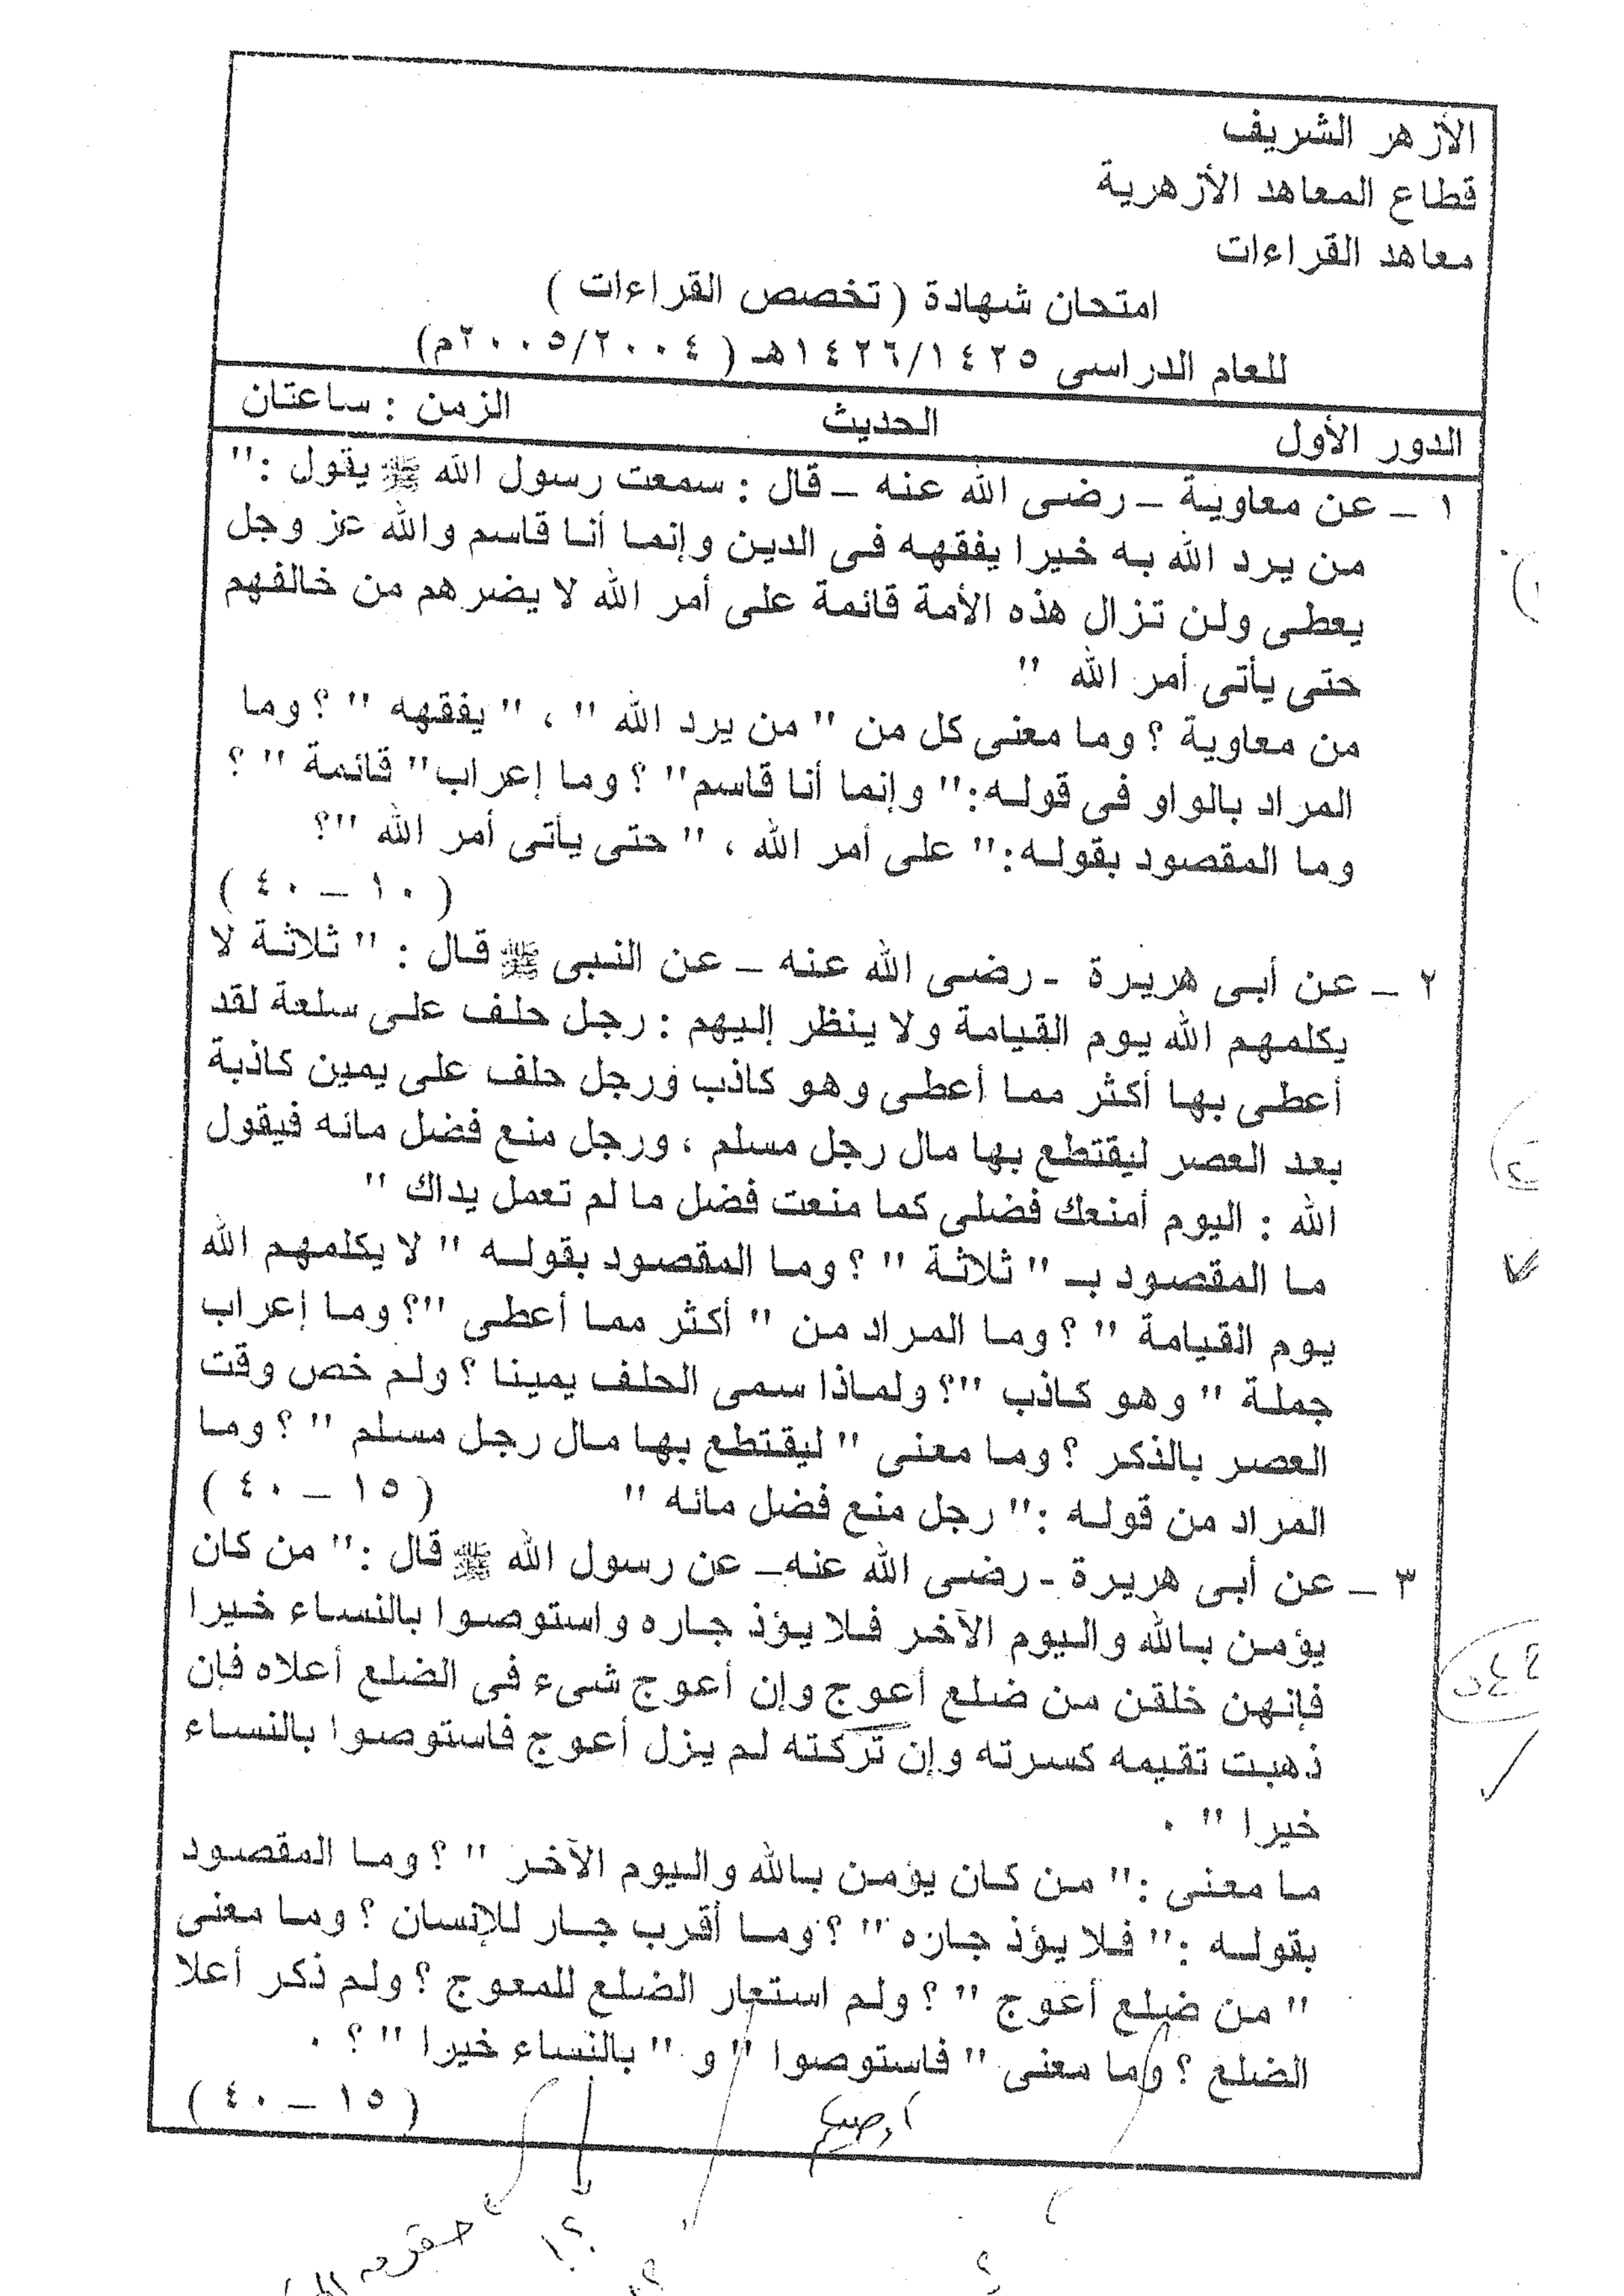 الأزهر الشريف
قطاع المعاهد الأزهرية
معاهد القراءات
امتحان شهادة ( تخصص القراءات )
للعام الدراسى ١٤٢٦/١٤٢٥هـ ( ٢٠٠٥/٢٠٠٤م)
الدور الأول الحديث الزمن : ساعتان
١ – عن معاوية – رضى الله عنه – قال : سمعت رسول الله ﷺ يقول :"
من يرد الله به خيرا يفقهه فى الدين وإنما أنا قاسم والله عز وجل
يعطى ولن تزال هذه الأمة قائمة على أمر الله لا يضرهم من خالفهم
حتى يأتى أمر الله "
من معاوية ؟ وما معنى كل من " من يرد الله " ، " يفقهه " ؟ وما
المراد بالواو فى قوله:" وإنما أنا قاسم" ؟ وما إعراب" قائمة " ؟
وما المقصود بقوله:" على أمر الله ، " حتى يأتى أمر الله "؟
( ١٠ – ٤٠ )
٢ – عن أبى هريرة - رضى الله عنه – عن النبى ﷺ قال : " ثلاثة لا
يكلمهم الله يوم القيامة ولا ينظر إليهم : رجل حلف على سلعة لقد
أعطى بها أكثر مما أعطى وهو كاذب ورجل حلف على يمين كاذبة
بعد العصر ليقتطع بها مال رجل مسلم ، ورجل منع فضل مائه فيقول
الله : اليوم أمنعك فضلى كما منعت فضل ما لم تعمل يداك "
ما المقصود بـ " ثلاثة " ؟ وما المقصود بقوله " لا يكلمهم الله
يوم القيامة " ؟ وما المراد من " أكثر مما أعطى "؟ وما إعراب
جملة " وهو كاذب "؟ ولماذا سمى الحلف يمينا ؟ ولم خص وقت
العصر بالذكر ؟ وما معنى " ليقتطع بها مال رجل مسلم " ؟ وما
المراد من قوله :" رجل منع فضل مائه " ( ١٥ – ٤٠ )
٣ – عن أبى هريرة - رضى الله عنه– عن رسول الله ﷺ قال :" من كان
يؤمن بالله واليوم الآخر فلا يؤذ جاره واستوصوا بالنساء خيرا
فإنهن خلقن من ضلع أعوج وإن أعوج شىء فى الضلع أعلاه فإن
ذهبت تقيمه كسرته وإن تركته لم يزل أعوج فاستوصوا بالنساء
خيرا " .
ما معنى :" من كان يؤمن بالله واليوم الآخر " ؟ وما المقصود
بقوله :" فلا يؤذ جاره " ؟ وما أقرب جار للإنسان ؟ وما معنى
" من ضلع أعوج " ؟ ولم استعار الضلع للمعوج ؟ ولم ذكر أعلا
الضلع ؟ وما معنى " فاستوصوا " و " بالنساء خيرا " ؟ .
( ١٥ – ٤٠ )